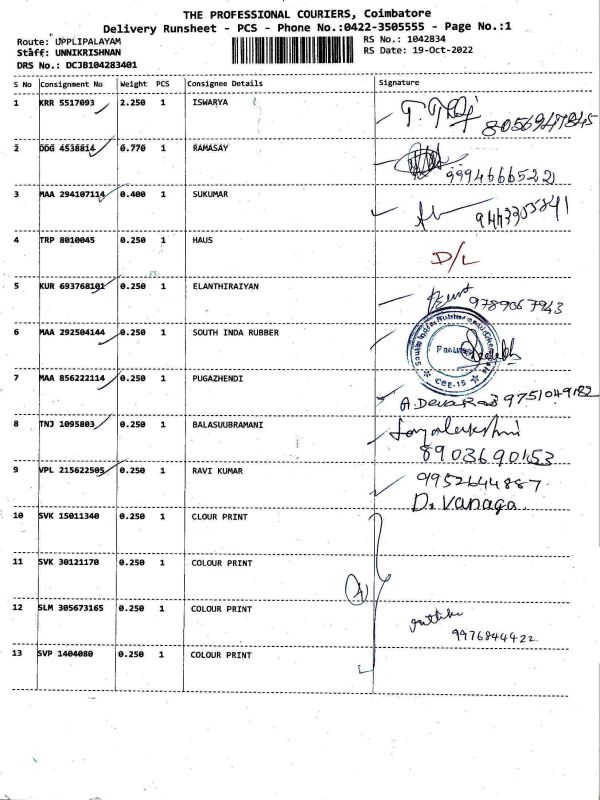 THE PROFESSIONAL COURIERS, Coimbatore
Delivery Runsheet - PCS - Phone No.:0422-3505555 - Page No.:1
Route: UPPLIPALAYAM
RS No.: 1042834
Staff: UNNIKRISHNAN
RS Date: 19-Oct-2022
DRS No.: DCJB104283401
S No Consignment No Weight PCS Consignee Details Signature
1 KRR 5517093 2.250 1 ISWARYA
8056947845
2 DDG 4538814 0.770 1 RAMASAY
9994666522
3 MAA 294107114 0.400 1 SUKUMAR
9443355841
4 TRP 8010045 0.250 1 HAUS
D/L
5 KUR 693768101 0.250 1 ELANTHIRAIYAN
9789067943
6 MAA 292504144 0.250 1 SOUTH INDA RUBBER
CBE.15
7 MAA 856222114 0.250 1 PUGAZHENDI
9751049182
8 TNJ 1095803 0.250 1 BALASUUBRAMANI
8903690153
9 VPL 215622505 0.250 1 RAVI KUMAR
9952644887
D. Vanaga
10 SVK 15011340 0.250 1 CLOUR PRINT
11 SVK 30121170 0.250 1 COLOUR PRINT
4
12 SLM 305673165 0.250 1 COLOUR PRINT
9976844422
13 SVP 1404080 0.250 1 COLOUR PRINT